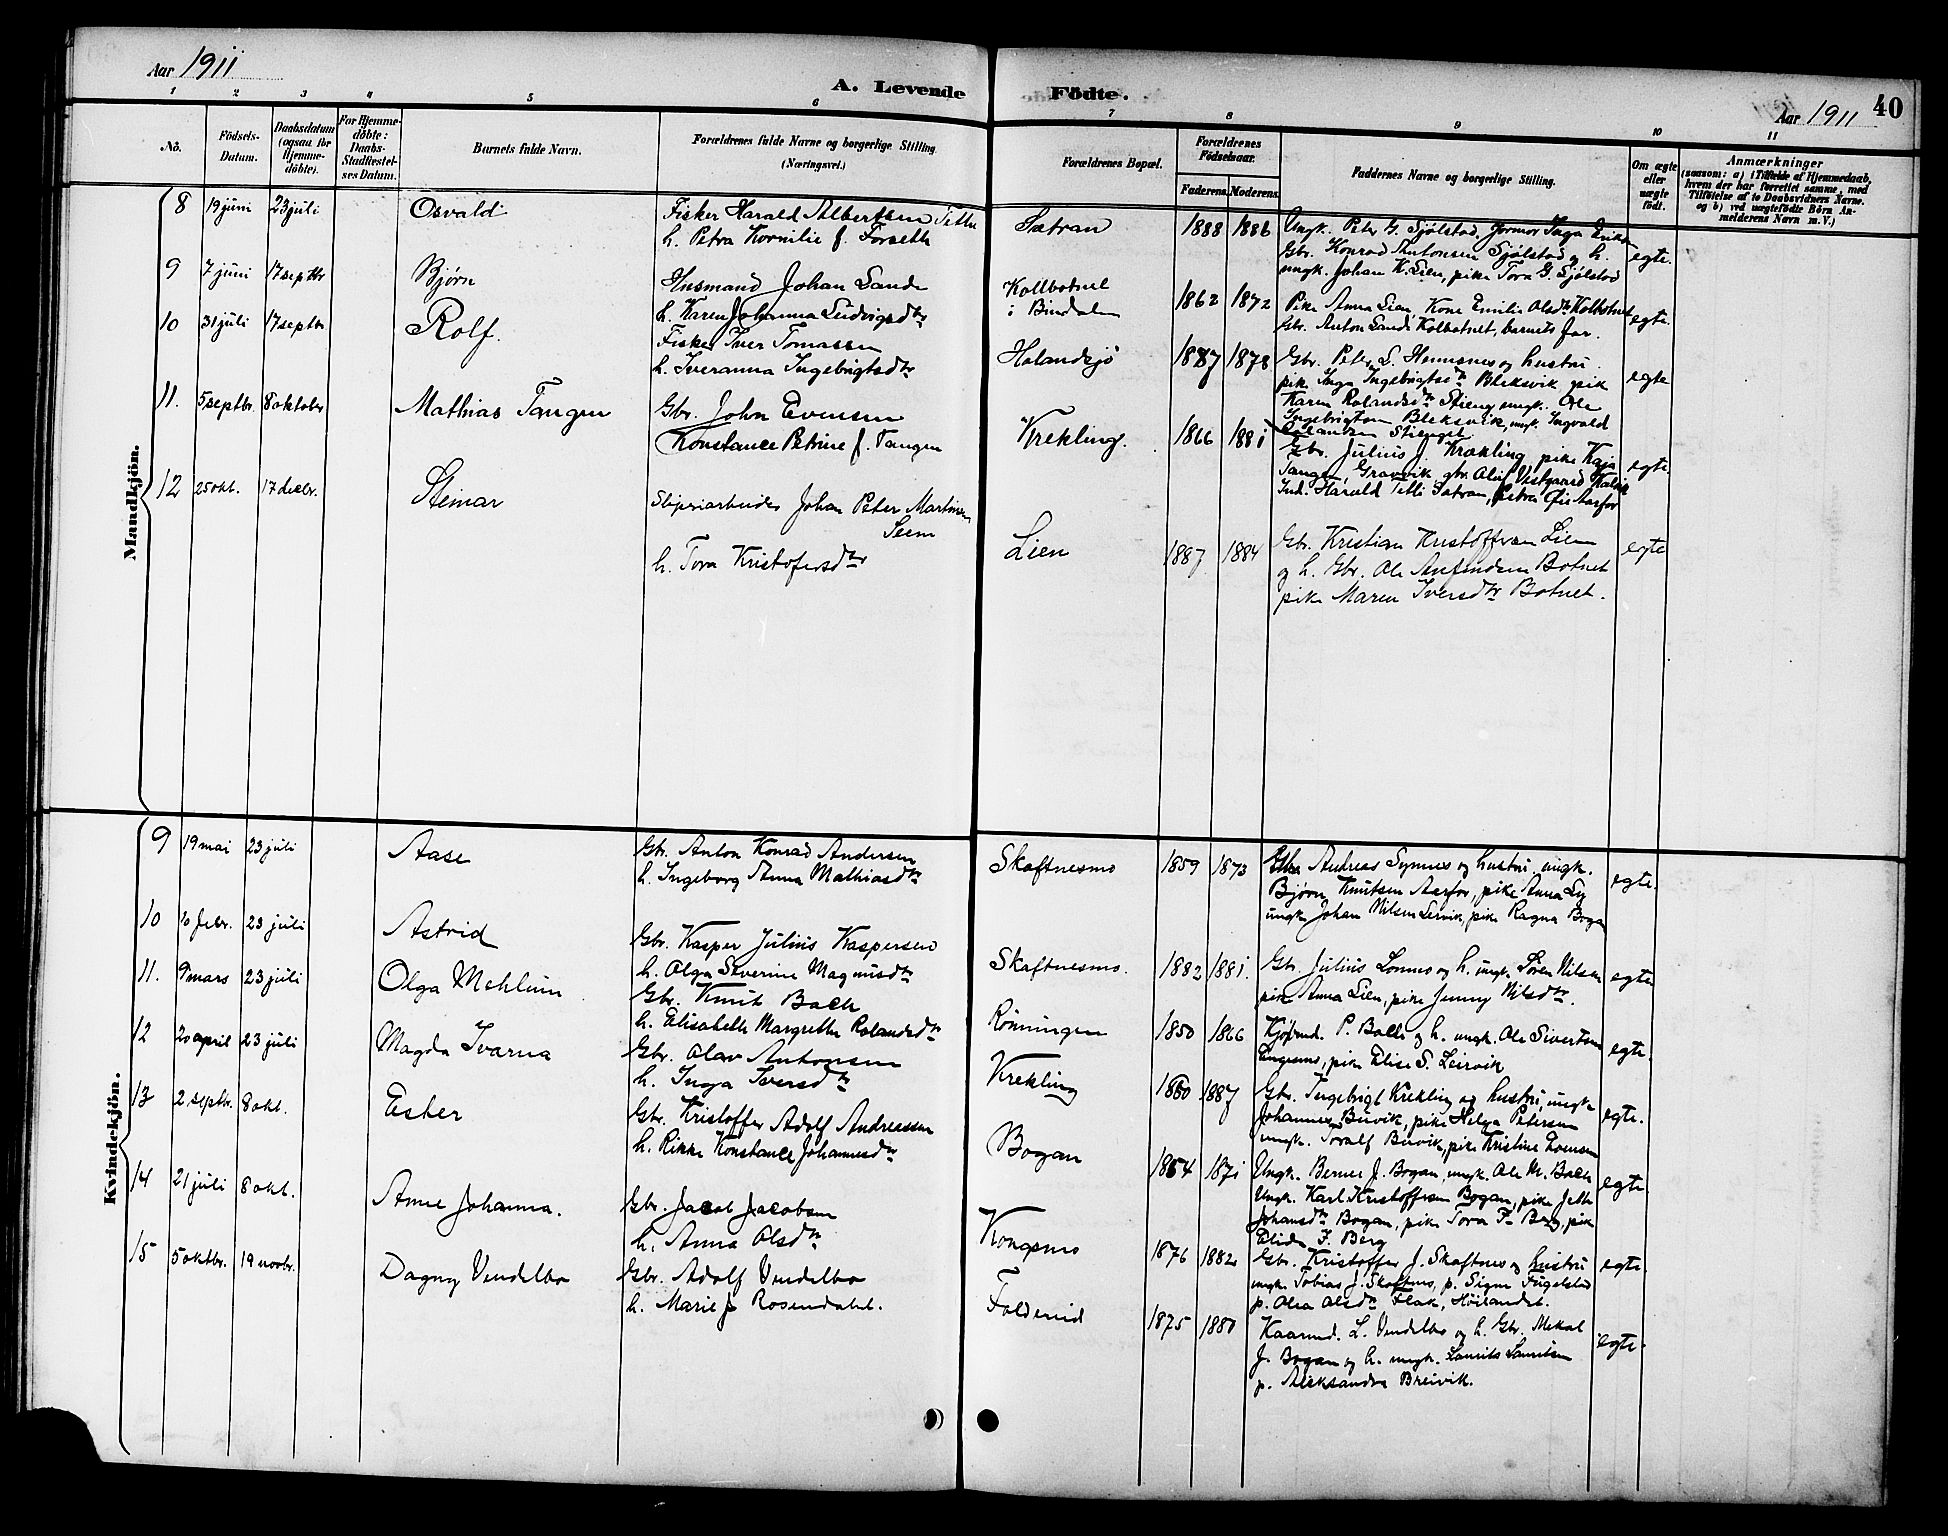 Aar 1911
A. Levende Födte.
Aar 1911 40
1 2 3 4 5 6 7 8 9 10 11
No.
Födsels-Datum.
Daabsdatum (ogsaa for Hjemme-döbte).
For Hjemme-döbte: Daabs-Stadfæstel-ses Datum.
Barnets fulde Navn.
Forældrenes fulde Navne og borgerlige Stilling (Næringsvei.)
Forældrenes Bopæl.
Forældrenes Födselsaar.
Faderens. Moderens.
Faddernes Navne og borgerlige Stilling.
Om ægte eller uægte födt.
Anmærkninger
(saasom: a) i Tilfælde af Hjemmedaab, hvem der har forrettet samme, med Tilföielse af to Daabsvidners Navne. og b) ved uægtefödte Börn An-melderens Navn m. V.)
Mandkjön.
8 19 juni 23 juli Osvald
Fisker Harald Albertsen Tetli
h. Petra Kornilie f. Forseth
Sætran 1888 1886
Ungk. Peter G. Sjølstad, Gormor Inga Eriksen
Gbr. Konrad Antonsen Sjølstad og h.
ungk. Johan K. Lien, pike Tora G. Sjølstad
egte.
9 7 juni 17 septbr Bjørn
Husmand Johan Sande
h. Karen Johanna Ludvigsdtr
Kollbotnet i Bindalen 1862 1872
Pike Anna Lien, Kone Emilie Olsdtr Kolbotnet
Gbr. Anton Sande Kolbotnet, barnets far.
egte.
10 31 juli 17 septbr Rolf.
Fisker Iver Tomassen
h. Iveranna Ingebrigtsdtr
Holandsjö 1887 1878
Gbr. Peter L. Hennesnes og hustru.
pik. Inga Ingebrigtsdtr Bleksvik, pik
Karen Rolandsdtr Stieng, ungk. Ole
Ingebrigtsen Bleksvik, ungk. Ingvald
Rolandsen Stienget.
egte
11. 5 septbr. 8 oktober Mathias Tangen
Gbr. John Evensen
Konstance Petrine f. Tangen
Krekling. 1866 1881
Gbr. Julius J. Krækling, pike Kaja
Tangen, Gravvik, gbr. Olaf Vestgaard Kalvik
Ind. Harald Tetli Sætran, Petra Øie Aarfor
egte.
12 25 okt. 17 decbr. Steinar
Sliperiarbeider Johan Peter Martinsen
Seem
h. Tora Kristofersdtr
Lien 1887 1884
Gbr. Kristian Kristoffersen Lien
og h. Gbr. Ole Anfindsen Botnet
pike Maren Iversdtr Botnet.
egte
Kvindekjön.
9 19 mai 23 juli Aase
Gbr. Anton Konrad Andersen
h. Ingeborg Anna Mathiasdtr
Skaftnesmo 1859 1873
Gbr. Andreas Synnes og hustru, ungk.
Bjørn Knutsen Aarfor, pike Anna Lie
ungk Johan Nilsen Lervik, pike Ragna Bogan
egte.
10 10 febr. 23 juli Astrid
Gbr. Kasper Julius Kaspersen
h. Olga Severine Magnusdtr
Skaftnesmo. 1882 1881.
Gbr. Julius Lonnes og h. ungk. Søren Nilsen
pike Anna Lien, pike Jenny Nilsdtr.
egte
11. 9 mars 23 juli Olga Mehlum
Gbr. Knut Bach
h. Elisabeth Margrethe Rolandsdtr
Rönningen 1850 1866
Kjöbmd. P. Bach og h. ungk. Ole Sivertsen
Engesnes, pike Elise S. Leirvik
egte.
12 20 april 23 juli Magda Ivarna
Gbr. Olav Antonsen
h. Inga Iversdtr
Krekling 1880 1887
Gbr. Ingebrigt Krekling og hustru, ungk
Johannes Buvik, pike Helga Petersen
ungk. Toralf Buvik, pik Kristine Evensen
egte.
13 2 septbr. 8 okt. Ester
Gbr. Kristoffer Adolf Andreassen
h. Rikke Konstance Johannesdtr
Bogan 1864 1871
Ungk. Berner J. Bogan, ungk. Ole M. Bach
Ungk. Karl Kristoffersen Bogan, pik Jette
Johansdtr Bogan, pik Tora F. Berg, pik
Elida F. Berg
egte.
14 21 juli 8 okt. Anne Johanna.
Gbr. Jacob Jacobsen
h. Anna Olsdtr
Kongsmo 1876 1882
Gbr. Kristoffer J. Skaftnes og hustru
ungk. Tobias J. Skaftnes, p. Signe Fugelstad
p. Olea Olsdtr Flak, Höilandet.
egte.
15 5 oktbr. 19 novbr. Dagny Vendelbo
Gbr. Adolf Vendelbo
h. Marie f. Rosendahl.
Foldereid 1875 1880
Kaarmd. L. Vendelbo og h. Gbr. Mekal
J. Bogan og h. ungk. Laurits Lauritsen
p. Aleksandra Breivik.
egte.